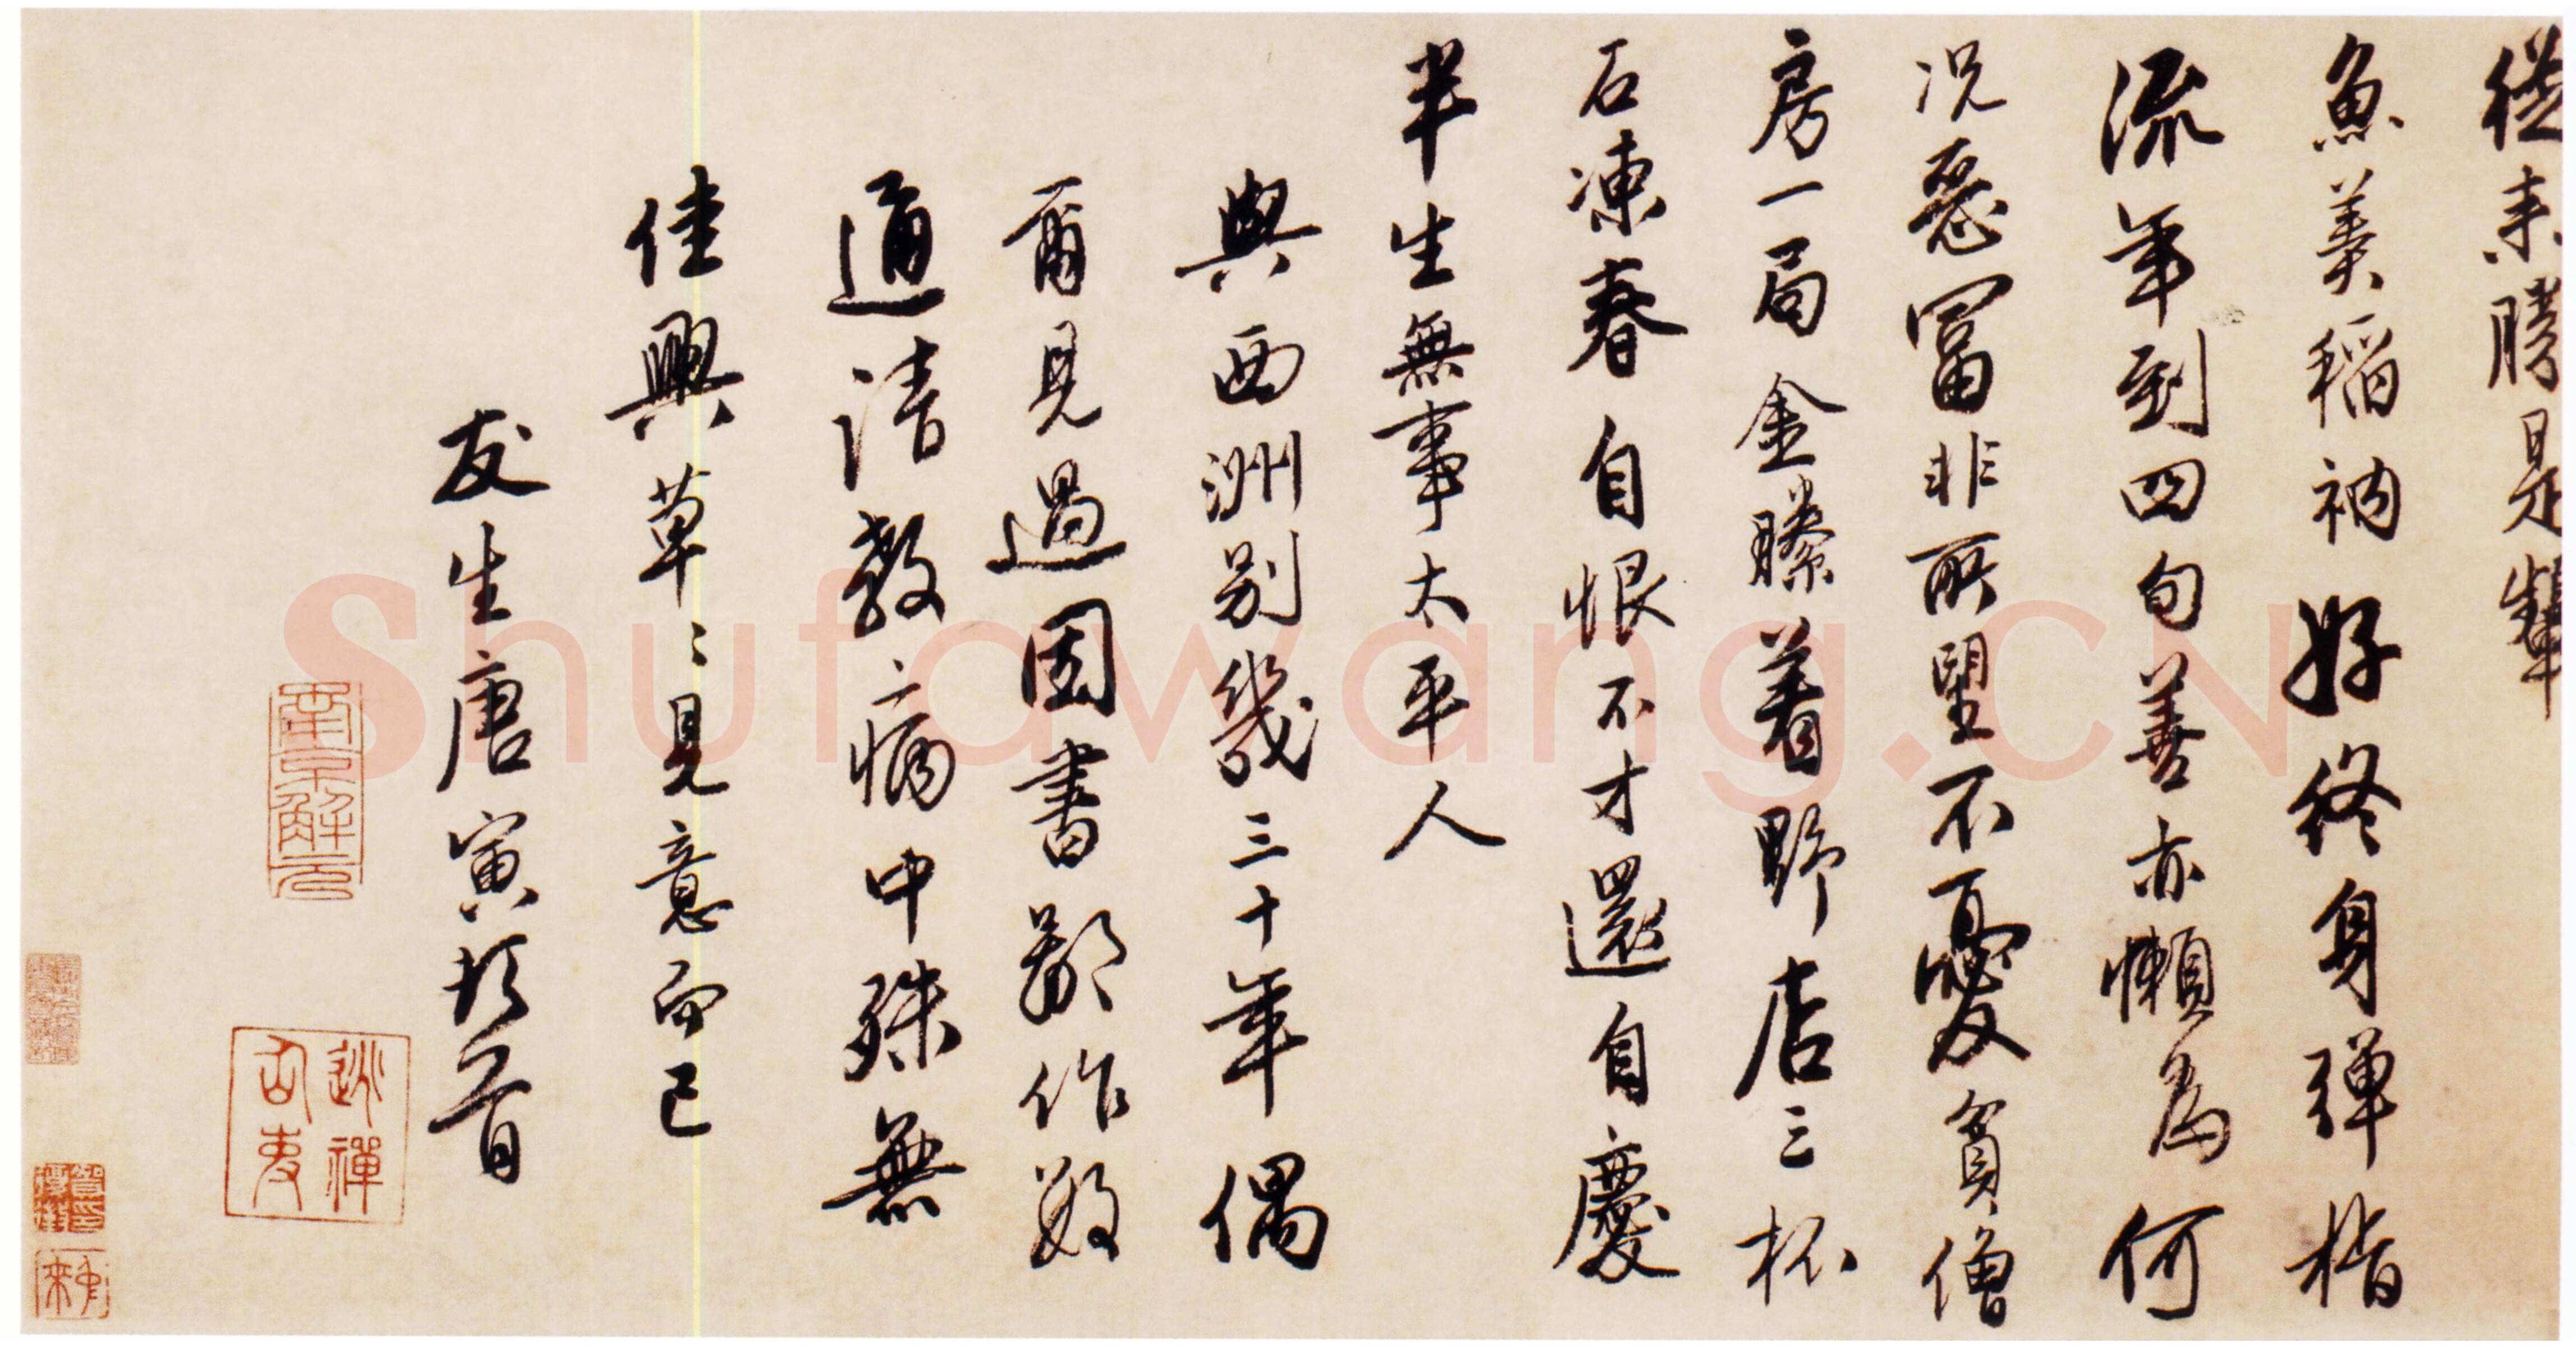 從来勝是
魚羹稻衲好終身彈指
流年到四旬善亦懶為何
況惡富非所望不憂貧僧
房一局金縢着野店三杯
石凍春自恨不才還自慶
半生無事太平人
與西洲別幾三十年偶
爾見過因書鄙作數
通請教病中殊無
佳興草〻見意而已
友生唐寅頓首
南京解元
逃禪仙吏
Shufawang.CN